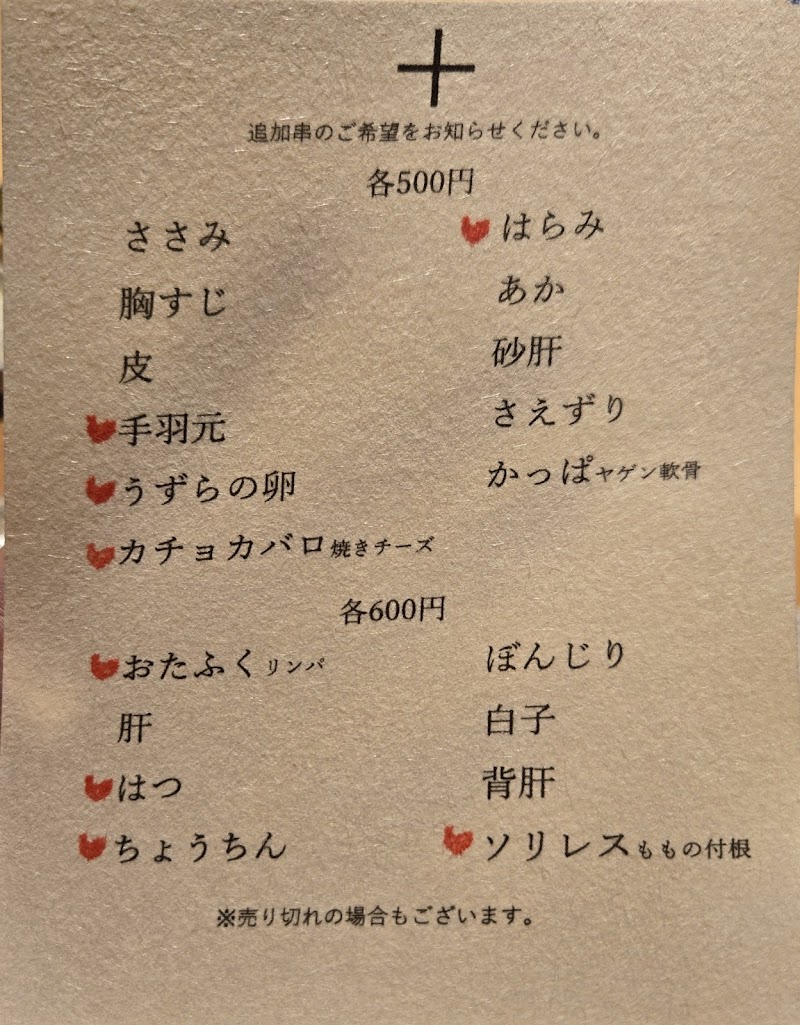 追加串のご希望をお知らせください。
各500円
ささみ
胸すじ
皮
手羽元
うずらの卵
カチョカバロ焼きチーズ
はらみ
あか
砂肝
さえずり
かっぱヤゲン軟骨
各600円
おたふくリンパ
肝
はつ
ちょうちん
ぼんじり
白子
背肝
ソリレスももの付根
※売り切れの場合もございます。